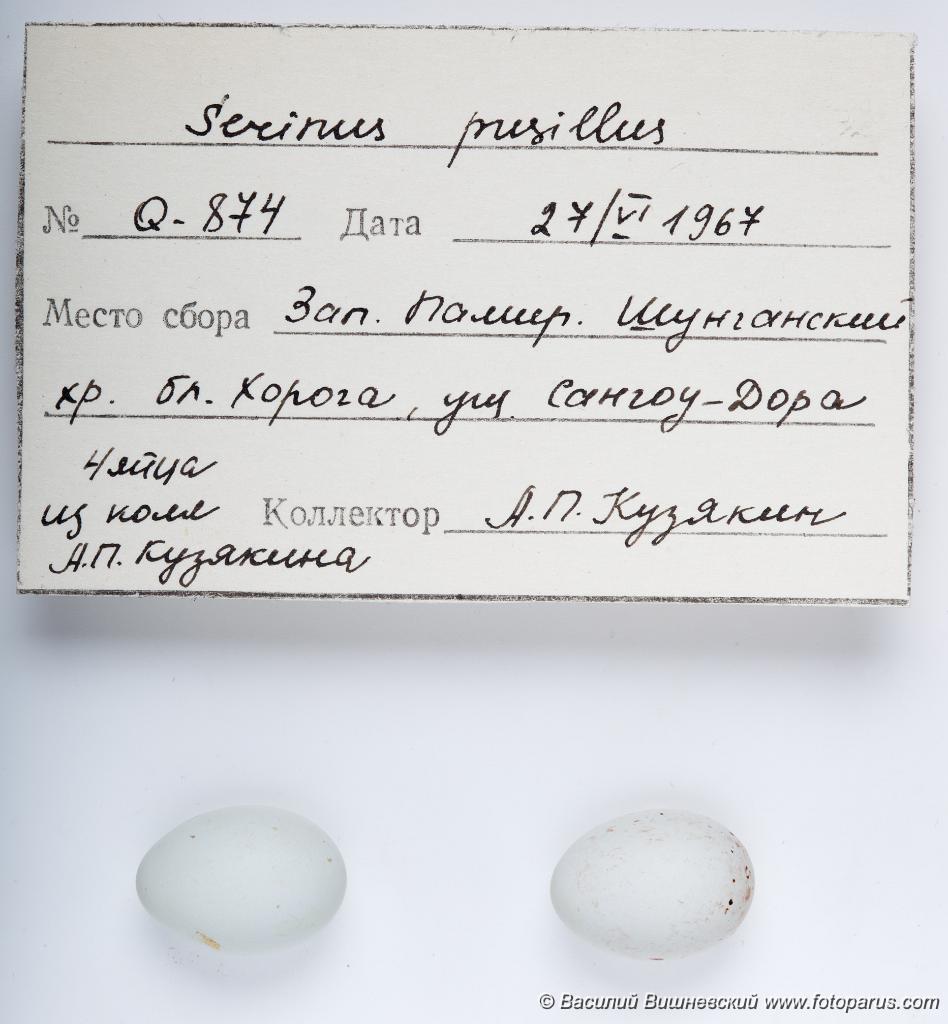 Serinus pusillus
№ Q-874 Дата 27/VI 1967
Место сбора Зап. Памир. Шунганский
хр. бл. Хорога, ущ. Сангоу-Дора
4 яйца
из колл Коллектор А.П. Кузякин
А.П. Кузякина
© Василий Вишневский www.fotoparus.com